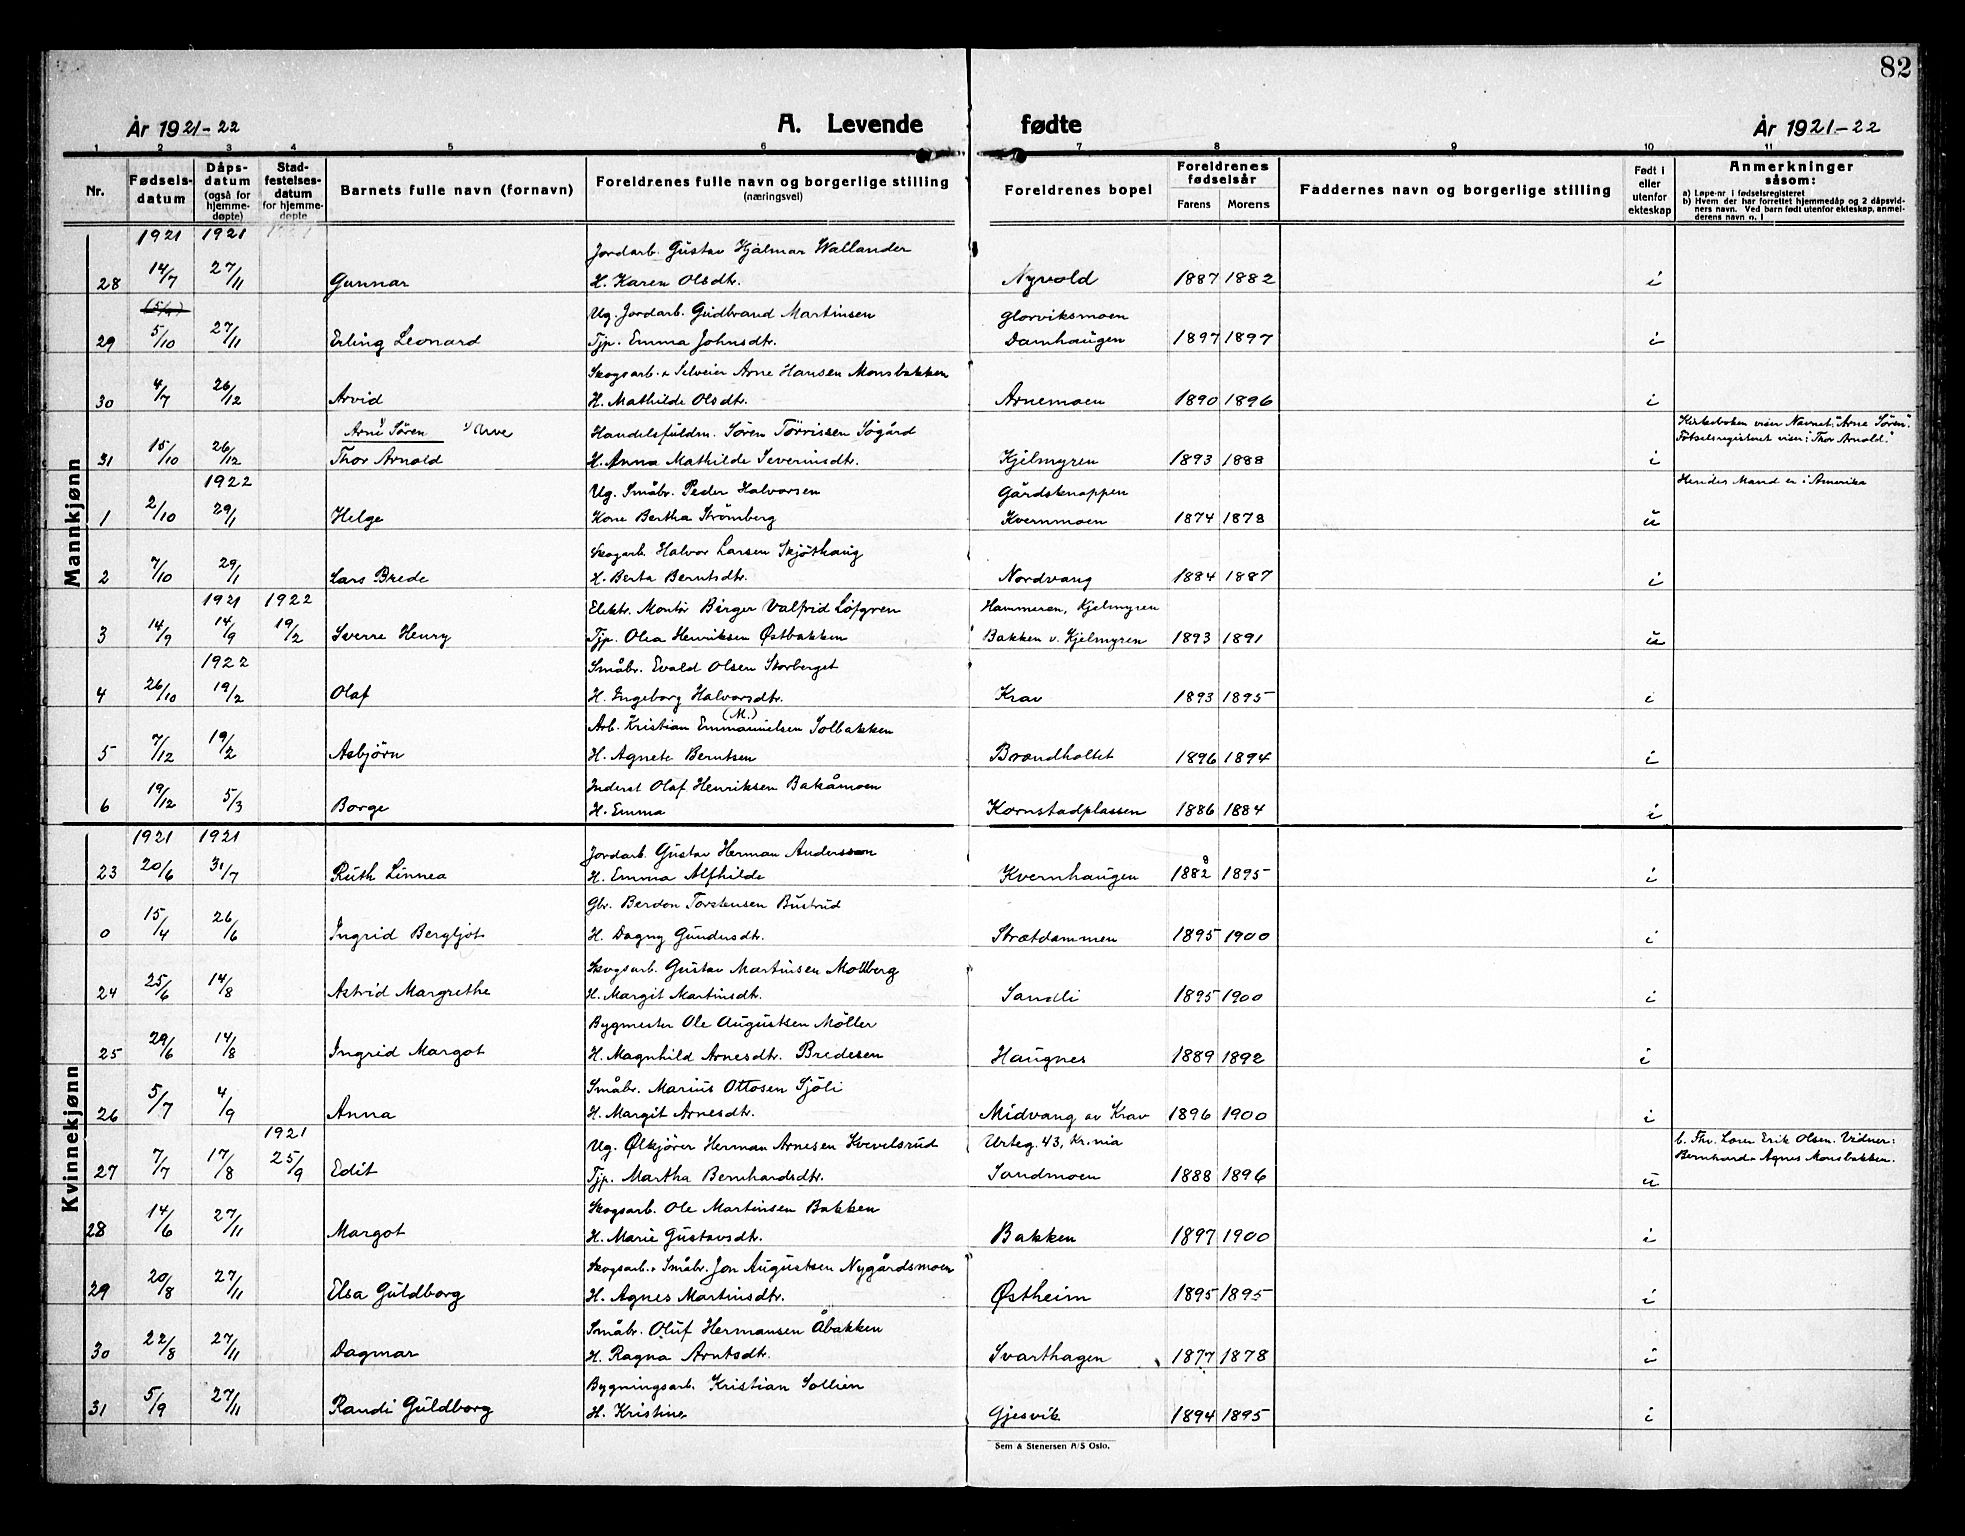 82
År 1921-22 A. Levende fødte År 1921-22
1 2 3 4 5 6 7 8 9 10 11
Nr. Fødsels-datum Dåps-datum (også for hjemme-døpte) Stad-festelses-datum for hjemme-døpte Barnets fulle navn (fornavn) Foreldrenes fulle navn og borgerlige stilling (næringsvei) Foreldrenes bopel Foreldrenes fødselsår Farens Morens Faddernes navn og borgerlige stilling Født i eller utenfor ekteskap Anmerkninger såsom: a) Løpe-nr. i fødselsregisteret b) Hvem der har forrettet hjemmedåp og 2 dåpsvidners navn. Ved barn født utenfor ekteskap, anmelderens navn n. l
Mannkjønn
1921 1921 Jordarb. Gustav Hjalmar Wallander
28 14/7 27/11 Gunnar H. Karen Olsdtr. Nyvold 1887 1882 i
(5/9) Ug. Jordarb. Gudbrand Martinsen Glorviksmoen
29 5/10 27/11 Erling Leonard Tjp. Emma Johnsdtr. Damhaugen 1897 1897 i
Skogsarb. + Selveier Arne Hansen Monsbakken
30 4/7 26/12 Arvid H. Mathilde Olsdtr. Arnemoen 1890 1896 i
Arne Søren Handelsfuldm. Søren Tørrissen Søgård Kirkeboken viser Navnet: "Arne Søren".
31 15/10 26/12 Thor Arnold H. Anna Mathilde Severinsdtr. Kjelmyren 1893 1888 i Fødselsregisteret viser: "Thor Arnold."
1922 Ug. Småbr. Peder Halvorsen Gårdsknappen Hendes Mand er i Amerika
1 2/10 29/1 Helge Kone Bertha Strömberg Kvernmoen 1874 1878 u
Skogarb. Halvor Larsen Skjøthaug
2 7/10 29/1 Lars Brede H. Berta Berntsdtr. Nordvang 1884 1887 i
1921 1922 Elektr. Montør Birger Valfrid Løfgren Hammeren, Kjelmyren
3 14/9 14/9 19/2 Sverre Henry Tjp. Olea Henriksen Østbakken Bakken v. Kjelmyren 1893 1891 u
1922 Småbr. Evald Olsen Storberget
4 26/10 19/2 Olaf H. Ingeborg Halvorsdtr. Krav 1893 1895 i
Arb. Kristian Emmanuelsen (M.) Solbakken
5 7/12 19/2 Asbjørn H. Agnete Berntsen Brændholtet 1896 1894 i
Inderst Olaf Henriksen Bakåmoen
6 19/12 5/3 Borge H. Emma Kornstadplassen 1886 1884 i
Kvinnekjønn
1921 1921 Jordarb. Gustav Herman Andersson
23 20/6 31/7 Ruth Linnea H. Emma Alfhilde Kvernhaugen 1882 1895 i
Gbr. Berdon Torstensen Bustrud
0 15/4 26/6 Ingrid Bergljot H. Dagny Gundersdtr. Strætdammen 1895 1900 i
Skogsarb. Gustav Martinsen Mollberg
24 25/6 14/8 Astrid Margrethe H. Margit Martinsdtr. Sandli 1895 1900 i
Bygmester Ole Augustsen Möller
25 29/6 14/8 Ingrid Margot H. Magnhild Arnesdtr. Bredesen Haugnes 1889 1892 i
Småbr. Marius Ottosen Sjöli
26 5/7 4/9 Anna H. Margit Arnesdtr. Midvang av Krav 1896 1900 i
1921 Ug. Ølkjører Herman Arnesen Kvevelsrud Urteg. 43, Kr.nia b. Fhv. Lærer Erik Olsen. Vidner:
27 7/7 17/8 25/9 Edit Tjp. Martha Bernhardsdtr. Sandmoen 1888 1896 u Bernhard + Agnes Monsbakken.
Skogsarb. Ole Martinsen Bakken
28 14/6 27/11 Margot H. Marie Gustavsdtr. Bakken 1897 1900 i
Skogsarb. + Småbr. Jon Augustsen Nygårdsmoen
29 20/8 27/11 Elsa Guldborg H. Agnes Martinsdtr. Østheim 1895 1895 i
Småbr. Oluf Hermansen Åbakken
30 22/8 27/11 Dagmar H. Ragna Arntsdtr. Svarthagen 1877 1878 i
Bygningsarb. Kristian Sollien
31 5/9 27/11 Randi Guldborg H. Kristine Gjesvik 1894 1895 i
Sem & Stenersen A/S Oslo.